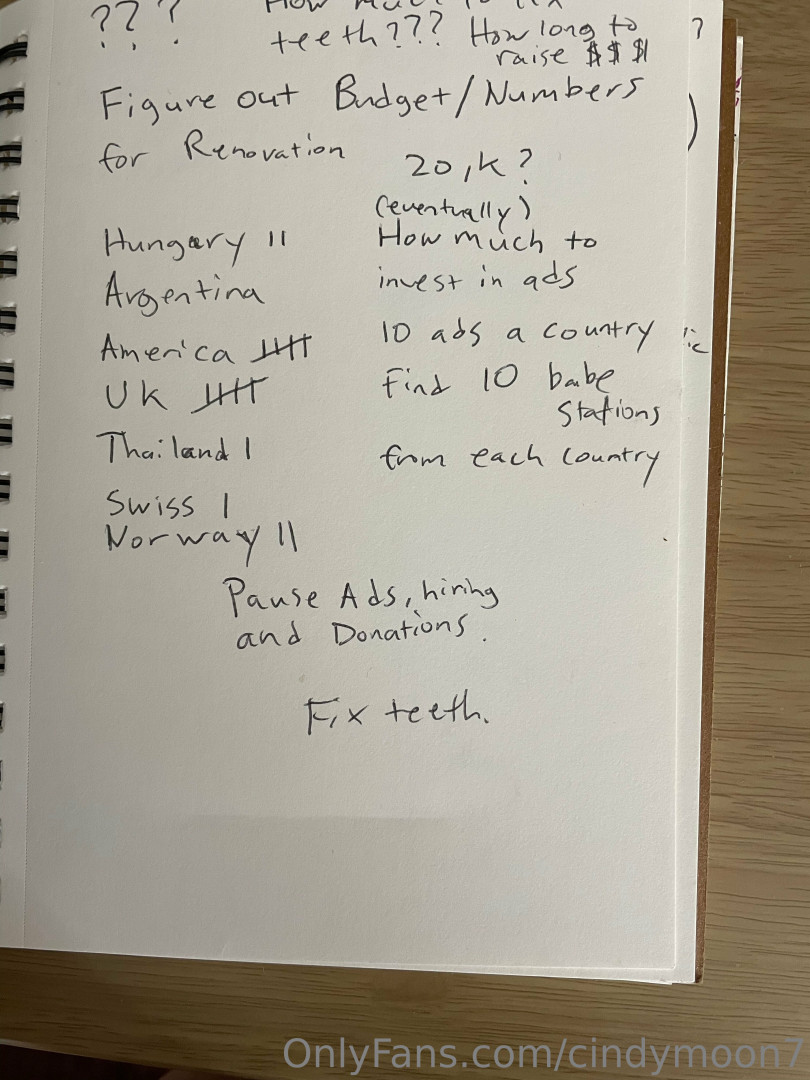 ? ? ? How much to fix
teeth??? How long to
raise $$$
Figure out Budget/Numbers
for Renovation
20,k?
(eventually)
Hungary II
How much to
Argentina
invest in ads
America 卌
10 ads a country
UK 卌
Find 10 babe
Stations
Thailand I
from each country
Swiss I
Norway II
Pause Ads, hiring
and Donations.
Fix teeth.
?
)
OnlyFans.com/cindymoon7